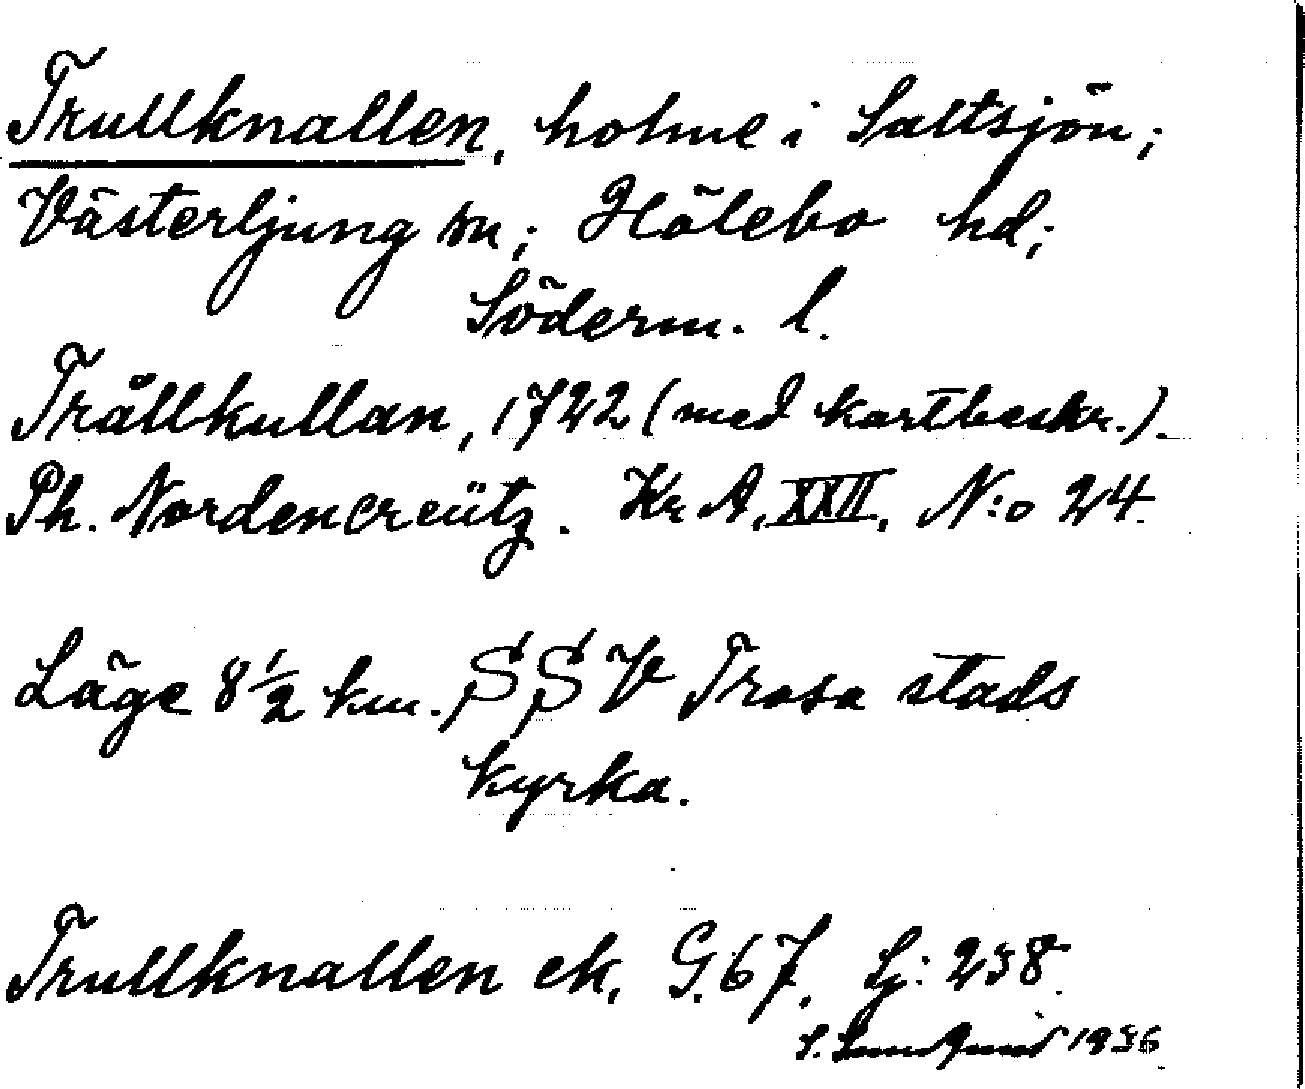 Trullknallen, holme i Saltsjön;
Västerljung sn; Hölebo hd;
Söderm. l.
Trållkullan, 1722 (med kartbeskr.).
Ph. Nordencreütz. Kr A, XXII, N:o 24.
Läge 8 1/2 km. SSV Trosa stads
kyrka.
Trullknallen ek, G. 67, Lj: 238.
S. Lundqvist 1936